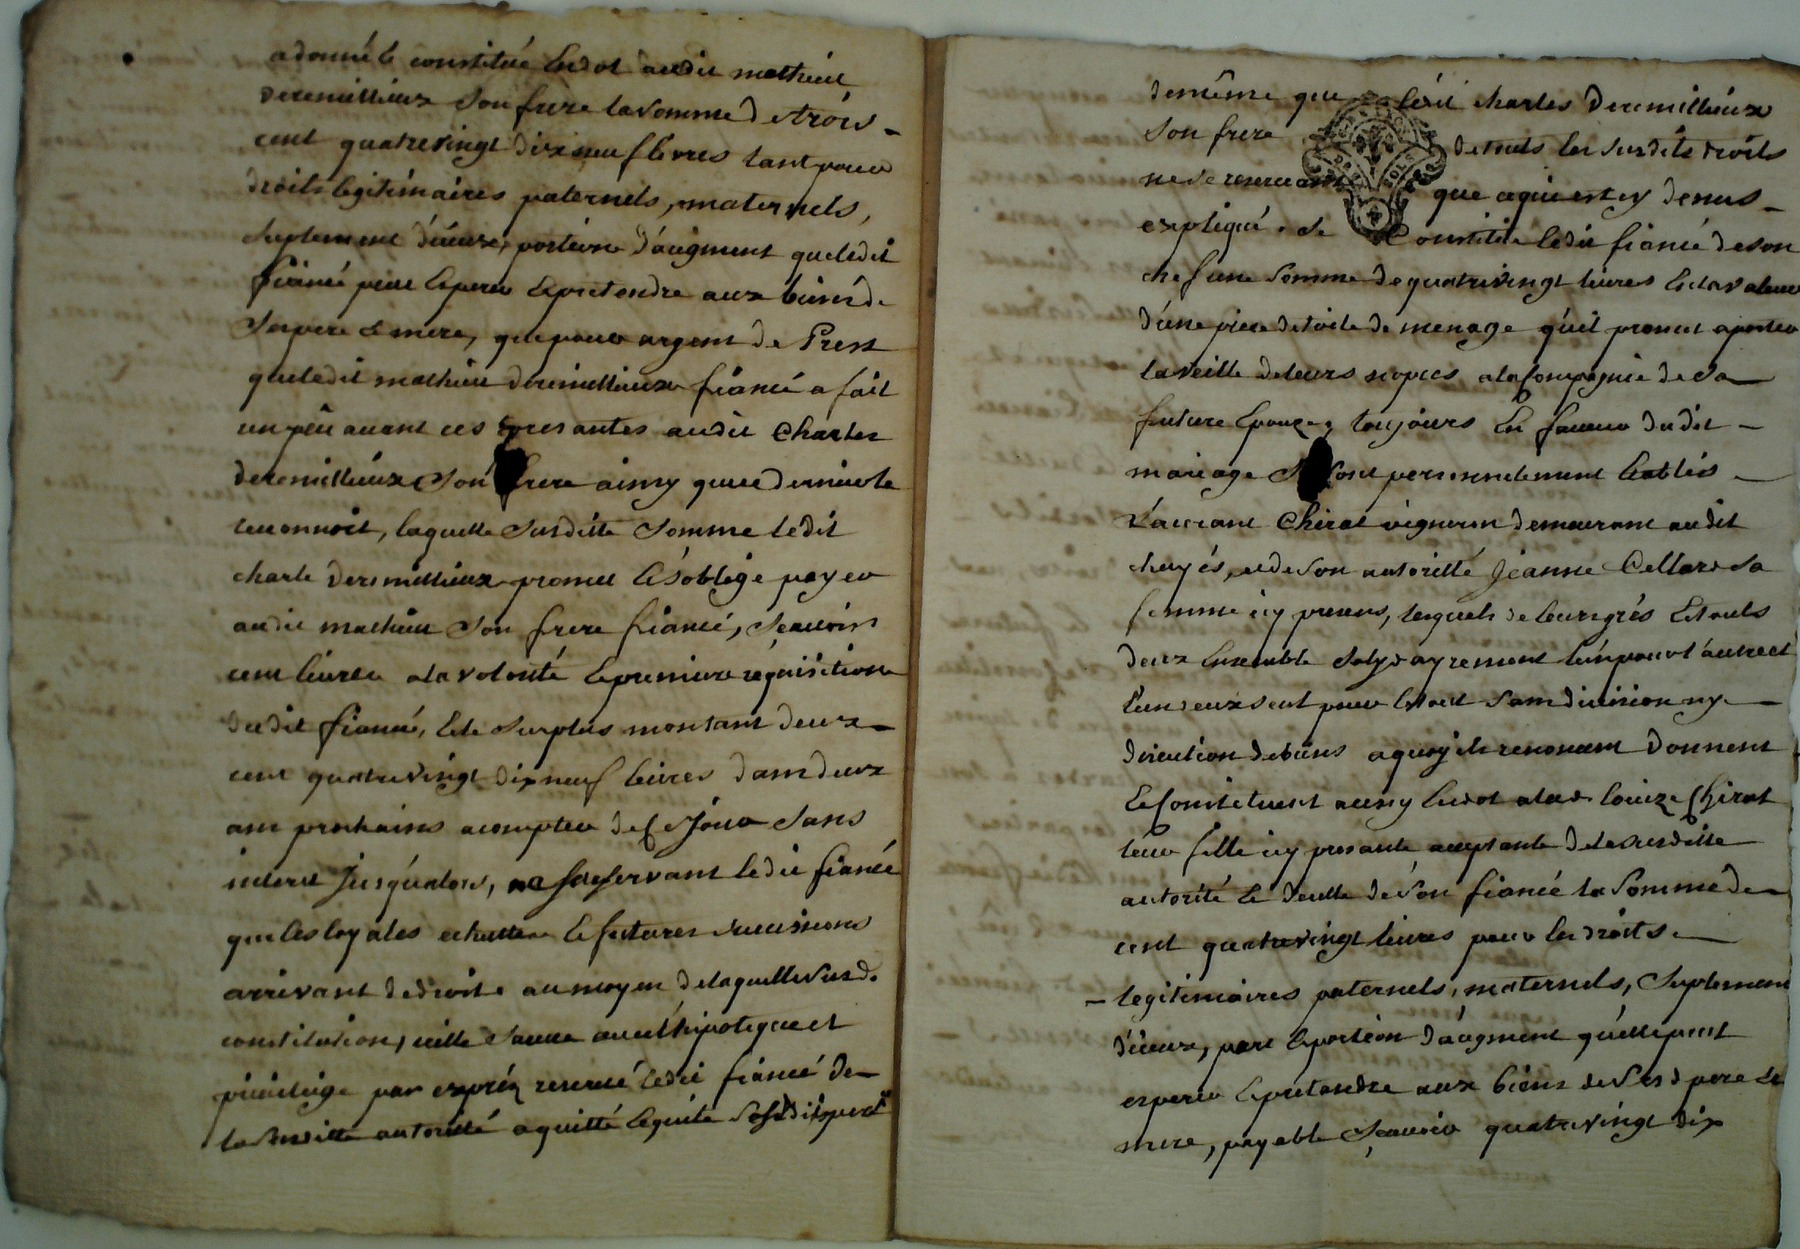 a donné & constitué En dot audit mathieu
deremillieux Son frere la Somme de trois
cent quatrevingt dix neuf livres tant pour
droits legitimaires paternels, maternels,
suplement d'iceux, portion d'augment que ledit
fiancé peut Esperer & pretendre aux biens de
Ses pere & mere, que pour argent de Prest
que ledit mathieu deremillieux fiancé a fait
un peu auant ces presantes audit Charles
deremillieux Son frere ainsy que ce dernier le
reconnoit, laquelle Susditte Somme ledit
charle deremillieux promet & s'oblige payer
audit mathieu Son frere fiancé, Scauoir
cent liures a la volonté & premiere requisition
dudit fiancé, & le Surplus montant deux
cent quatrevingt dix neuf liures dans deux
ans prochains a compter de Ce Jour Sans
interet Jusqu'alors, ne se reservant ledit fiancé
que les loyales echuttes & futures successions
arrivant de droit, au moyen de laquelle Susd.
constitution, icelle Sauue auec l'hipoteque et
priuilege par exprés reserué ledit fiancé de
la Susditte autorité a quitté & quite Sesdits pere &
demême que ledit charles Deremillieux
Son frere de touts les Susdits droits
ne se reseruant que ce qui est cy dessus
expliqué. Se Constitue ledit fiancé de son
chef une Somme de quatrevingt liures Et la valeur
d'une piece de toile de menage qu'il promet aporter
la veille de leurs nopces a la Compagnie de Sa
future Epouze, toujours En faueur dudit
mariage Se Sont personnellement Etablis
Chirat vigneron demeurant audit
chuyés, et de Son autorité Jeanne Cellard Sa
femme icy presens, lesquels de leurs grés Et touts
deux Ensemble Solydayrement l'un pour l'autre et
l'un deux Seul pour le tout Sans diuision ny
discution de biens a quoy ils renoncent Donnent
& Constituent aussy En dot a lad. louize Chirat
leur fille icy presante, acceptante de la Susditte
autorité & de celle de Son fiancé la Somme de
cent quatrevingt liures pour les droits
legitimaires paternels, maternels, Suplement
d'iceux, part & portion d'augment qu'elle peut
esperer & pretendre aux biens de Sesd. pere &
mere, payable Scauoir quatrevingt dix